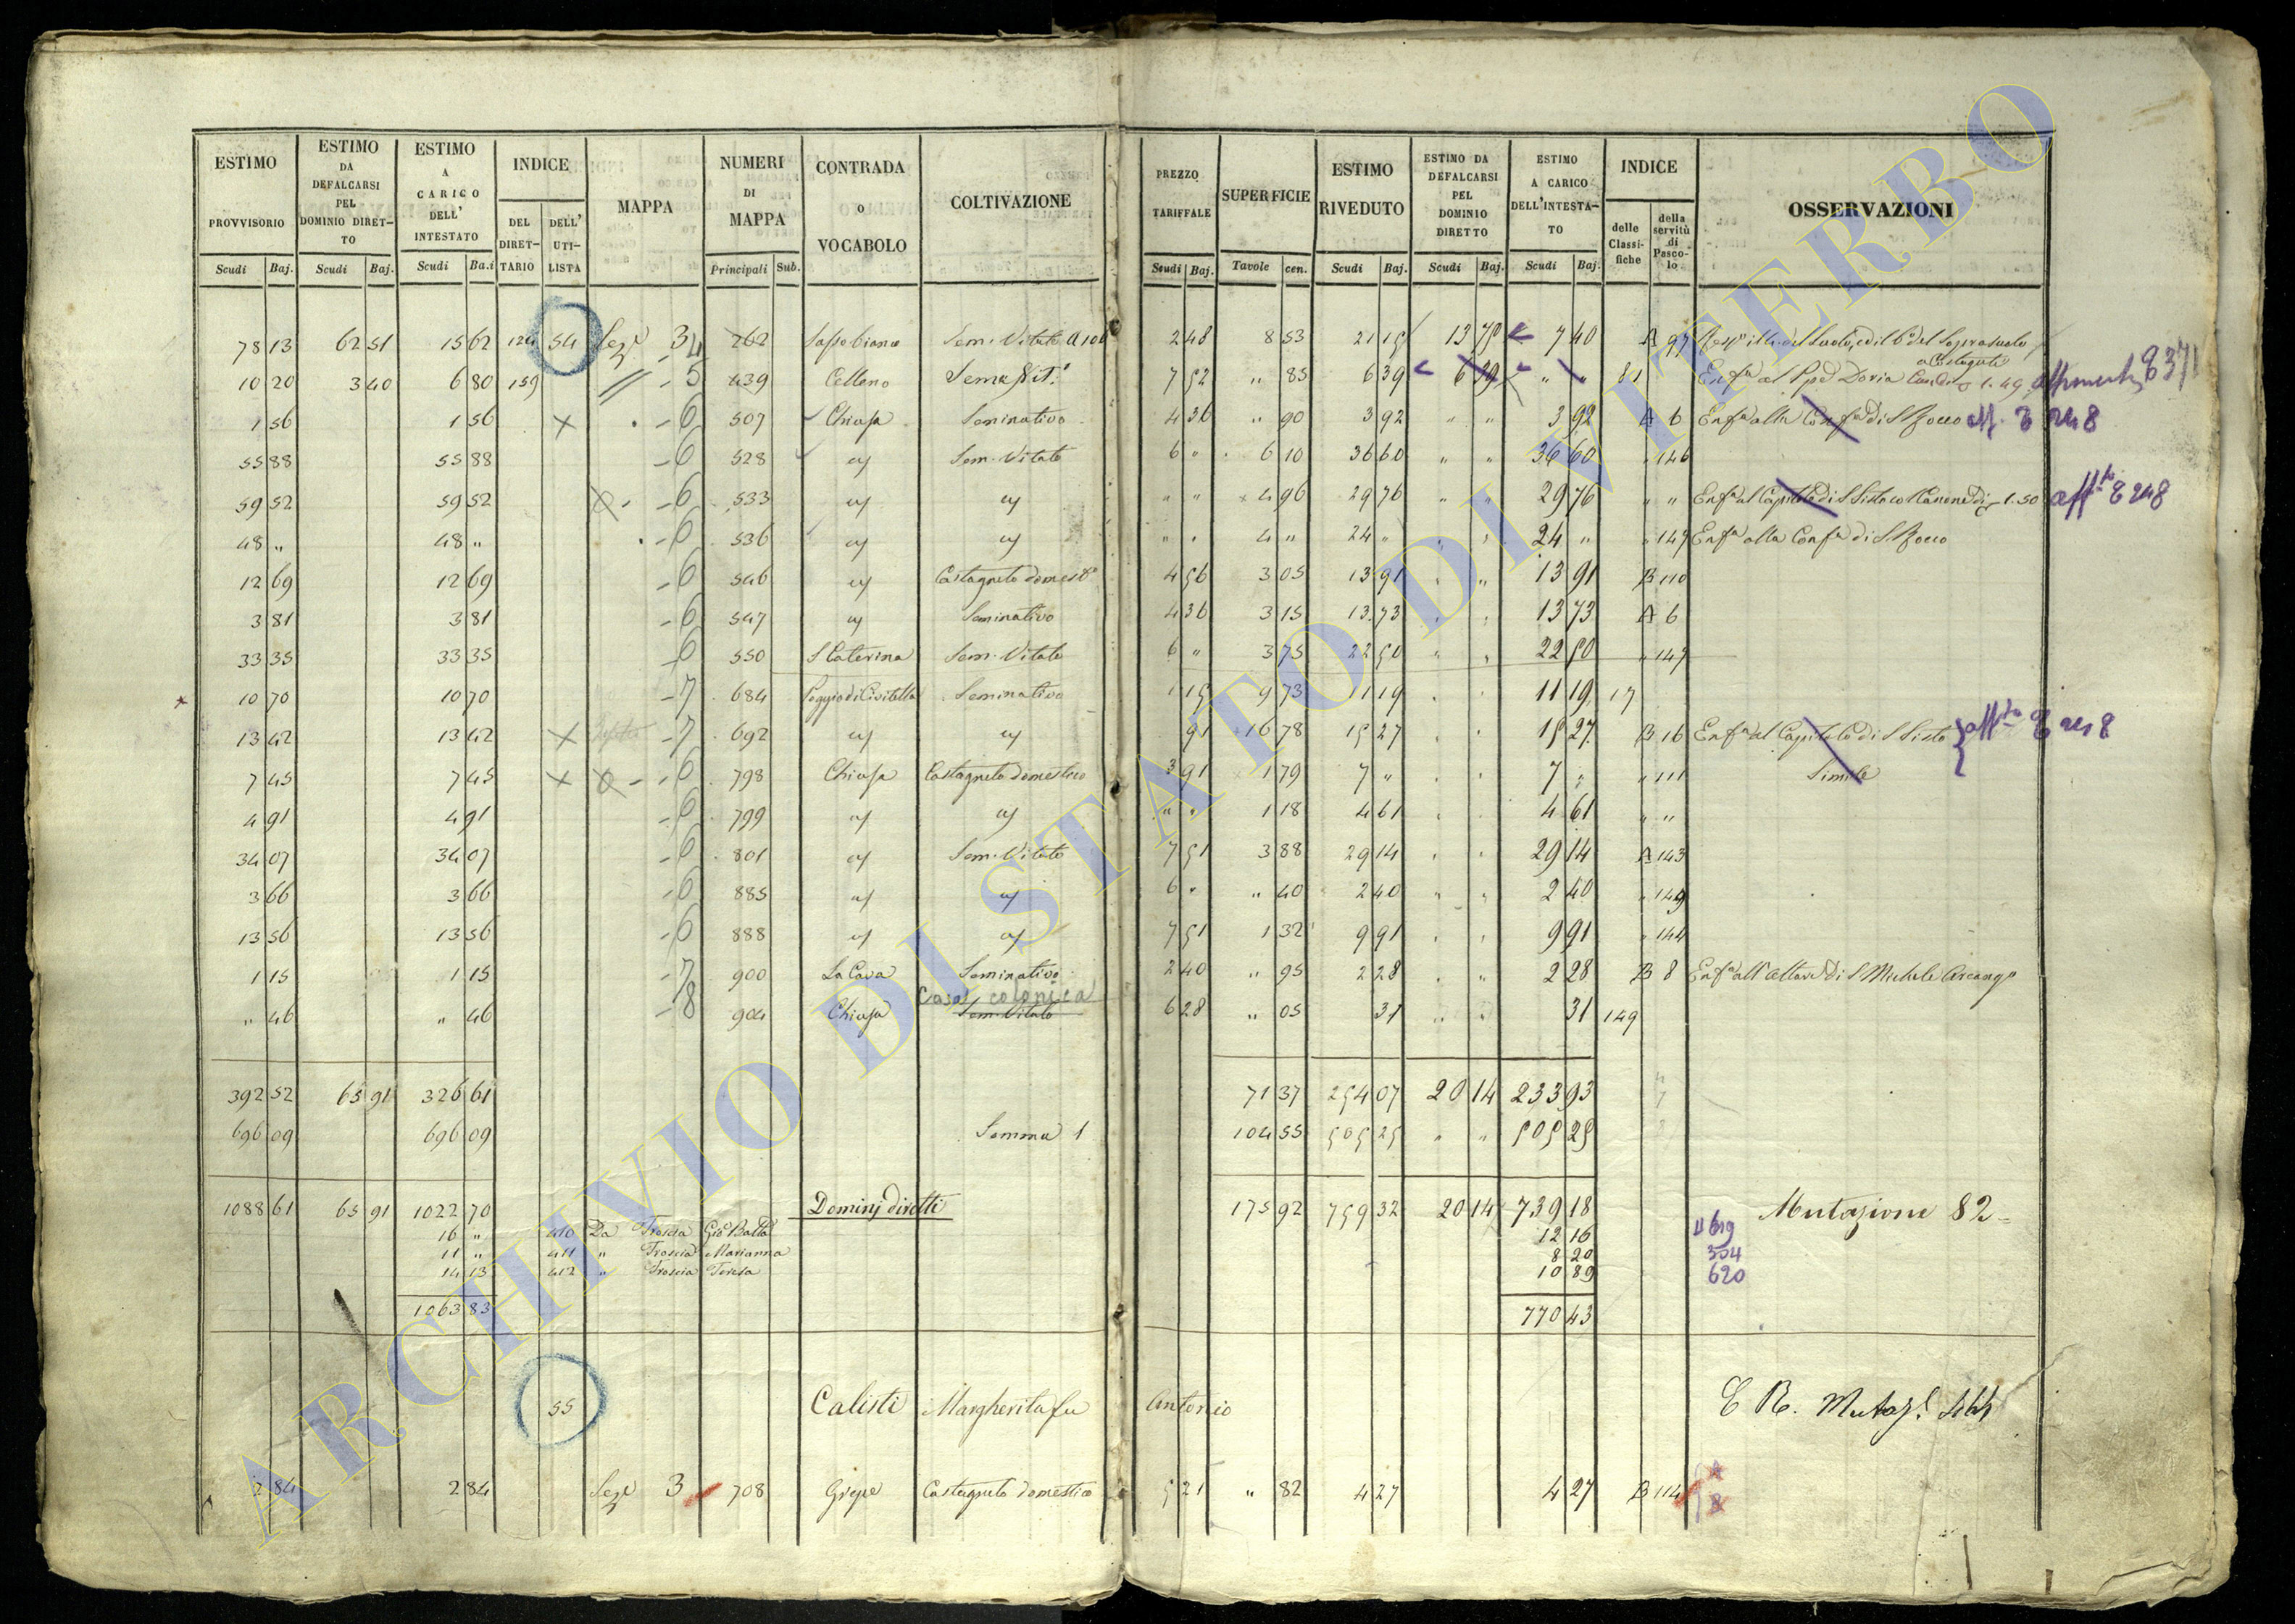 ESTIMO PROVVISORIO Scudi Baj. | ESTIMO DA DEFALCARSI PEL DOMINIO DIRETTO Scudi Baj. | ESTIMO A CARICO DELL' INTESTATO Scudi Ba.i | INDICE DEL DIRETTARIO DELL' UTILISTA | MAPPA | NUMERI DI MAPPA Principali Sub. | CONTRADA O VOCABOLO | COLTIVAZIONE | PREZZO TARIFFALE Scudi Baj. | SUPERFICIE Tavole cen. | ESTIMO RIVEDUTO Scudi Baj. | ESTIMO DA DEFALCARSI PEL DOMINIO DIRETTO Scudi Baj. | ESTIMO A CARICO DELL'INTESTATO Scudi Baj. | INDICE delle Classifiche della servitù di Pascolo | OSSERVAZIONI
78 13 | 62 51 | 15 62 | 124 | 54 | Sez.e 3 4 | 262 | Sassobianco | Sem. Vitato | 2 48 | 8 53 | 21 15 | 13 75 | 7 40 | A 97
10 20 | 3 40 | 6 80 | 159 | " - 5 | 439 | Celleno | 7 52 | " 85 | 6 39 | 6 39 | " " | 81 | Enf.a al Ppe Doria 8371
1 56 | 1 56 | x | - 6 | 507 | Chiusa | Seminativo | 4 36 | " 90 | 3 92 | " " | 3 92 | A 6 | Enf.a alla Conf.a di S Rocco
55 88 | 55 88 | - 6 | 528 | " | Sem. Vitato | 6 " | 6 10 | 36 60 | " " | 36 60 | " 146
59 52 | 59 52 | - 6 | 533 | " | " | " " | 4 96 | 29 76 | " " | 29 76 | " " | Enf.a al Capitolo di S Sisto col Canone di 1.50
48 " | 48 " | - 6 | 536 | " | " | " " | 4 " | 24 " | " " | 24 " | " 149 | Enf.a alla Conf.a di S Rocco
12 69 | 12 69 | - 6 | 546 | " | Castagneto domest.o | 4 56 | 3 05 | 13 91 | " " | 13 91 | B 110
3 81 | 3 81 | - 6 | 547 | " | Seminativo | 4 36 | 3 15 | 13 73 | " " | 13 73 | A 6
33 35 | 33 35 | - 6 | 550 | S Caterina | Sem. Vitato | 6 " | 3 75 | 22 50 | " " | 22 50 | " 149
10 70 | 10 70 | - 7 | 684 | Poggio di Civitella | Seminativo | 1 15 | 9 73 | 11 19 | " " | 11 19 | 17
13 42 | 13 42 | x | - 7 | 692 | " | " | 91 | 16 78 | 15 27 | " " | 15 27 | B 16 | Enf.a al Capitolo di S Sisto
7 45 | 7 45 | x | - 6 | 798 | Chiusa | Castagneto domestico | 3 91 | 1 79 | 7 " | " " | 7 " | " 111 | Simile
4 91 | 4 91 | - 6 | 799 | " | " | " " | 1 18 | 4 61 | " " | 4 61 | " "
34 07 | 34 07 | - 6 | 801 | " | Sem. Vitato | 7 51 | 3 88 | 29 14 | " " | 29 14 | A 143
3 66 | 3 66 | - 6 | 885 | " | " | 6 " | " 40 | 2 40 | " " | 2 40 | " 149
13 56 | 13 56 | - 6 | 888 | " | " | 7 51 | 1 32 | 9 91 | " " | 9 91 | " 144
1 15 | 1 15 | - 7 | 900 | La Cava | Seminativo | 2 40 | " 95 | 2 28 | " " | 2 28 | B 8 | Enf.a all'Altare di S Michele Arcang.o
" 46 | " 46 | - 8 | 904 | Chiusa | Casa colonica Sem. Vitato | 6 28 | " 05 | 31 | " " | 31 | 149
392 52 | 65 91 | 326 61 | 71 37 | 254 07 | 20 14 | 233 93
696 09 | 696 09 | Somma 1 | 104 55 | 505 25 | " " | 505 25
1088 61 | 65 91 | 1022 70 | Dominj diretti | 175 92 | 759 32 | 20 14 | 739 18 | Mutazione 82
16 " | 410 | Da Troscia Gio Batta | 12 16 | 619
11 " | 411 | " Troscia Marianna | 8 20 | 354
14 13 | 412 | " Troscia Teresa | 10 89 | 620
1063 83 | 770 43
55 | Calisti Margherita fu Antonio
2 84 | 2 84 | Sez.e 3 | 708 | Grepe | Castagneto domestico | 5 21 | " 82 | 4 27 | 4 27 | B 114
ARCHIVIO DI STATO DI VITERBO